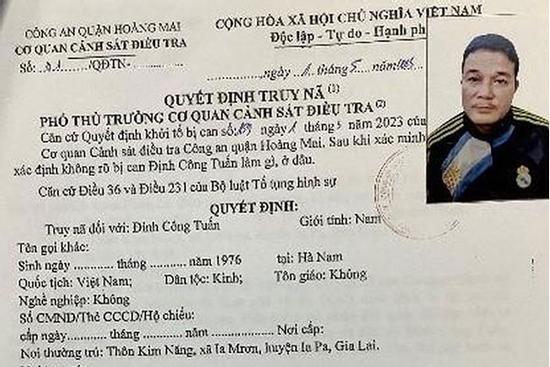 CÔNG AN QUẬN HOÀNG MAI
CỘNG HÒA XÃ HỘI CHỦ NGHĨA VIỆT NAM
CƠ QUAN CẢNH SÁT ĐIỀU TRA
Độc lập - Tự do - Hạnh ph
Số: /QĐTN-
ngày 1 tháng 5 năm
QUYẾT ĐỊNH TRUY NÃ (1)
PHÓ THỦ TRƯỞNG CƠ QUAN CẢNH SÁT ĐIỀU TRA (2)
Căn cứ Quyết định khởi tố bị can số: ngày 1 tháng 5 năm 2023 của
Cơ quan Cảnh sát điều tra Công an quận Hoàng Mai. Sau khi xác minh
xác định không rõ bị can Đinh Công Tuấn làm gì, ở đâu.
Căn cứ Điều 36 và Điều 231 của Bộ luật Tố tụng hình sự
QUYẾT ĐỊNH:
Truy nã đối với: Đinh Công Tuấn Giới tính: Nam
Tên gọi khác:
Sinh ngày ............ tháng ........... năm 1976 tại: Hà Nam
Quốc tịch: Việt Nam; Dân tộc: Kinh; Tôn giáo: Không
Nghề nghiệp: Không
Số CMND/Thẻ CCCD/Hộ chiếu:
cấp ngày............ tháng............ năm .................. Nơi cấp:
Nơi thường trú: Thôn Kim Năng, xã Ia Mrơn, huyện Ia Pa, Gia Lai.